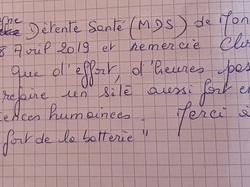 Détente Santé (MDS) de
8 Avril 2019 et remercie
que d'effort, d'heures
refaire un site aussi fort
humaines. Merci
fort de la batterie"